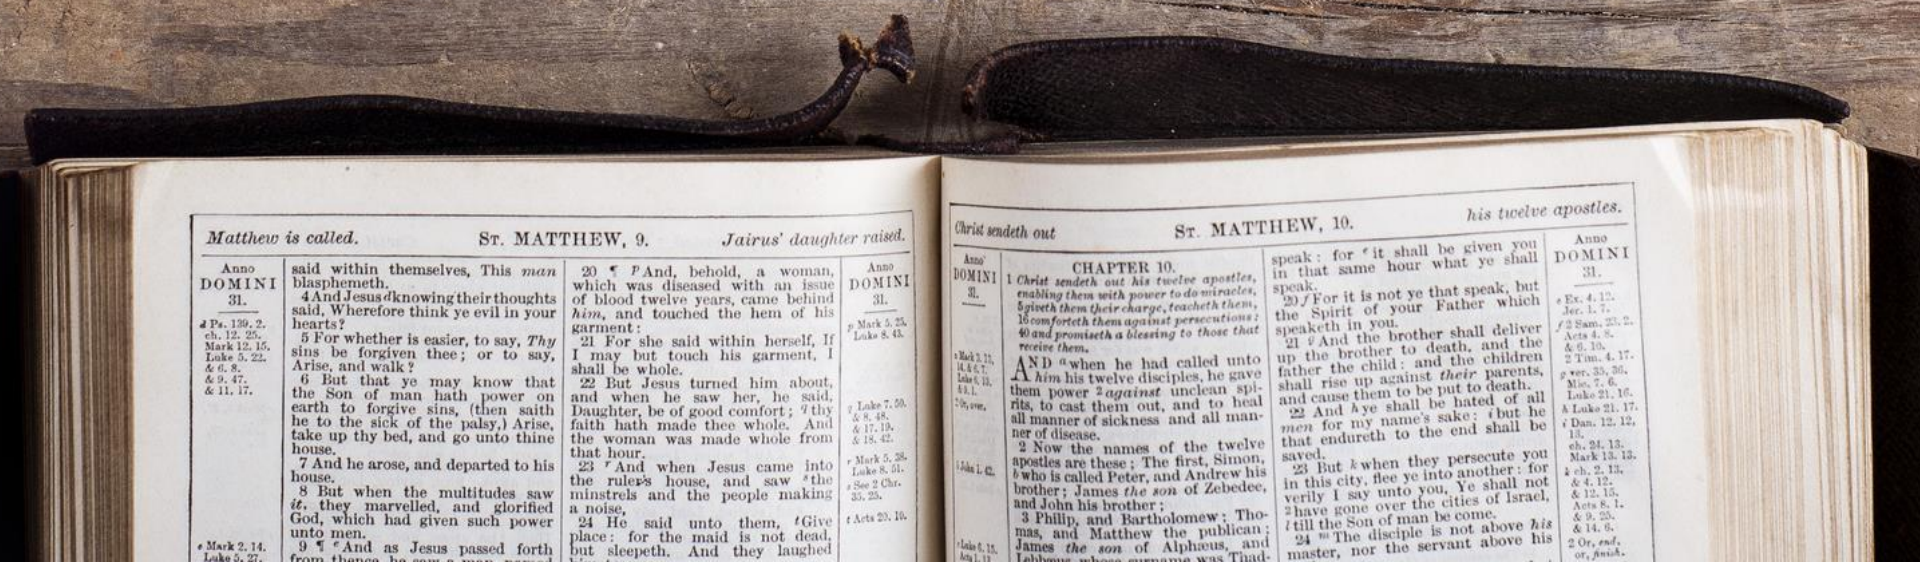 Matthew is called.
ST. MATTHEW, 9.
Jairus' daughter raised.
Anno
DOMINI
31.
d Ps. 139. 2.
ch. 12. 25.
Mark 12. 15.
Luke 5. 22.
& 6. 8.
& 9. 47.
& 11. 17.
e Mark 2. 14.
Luke 5. 27.
said within themselves, This man
blasphemeth.
4 And Jesus d knowing their thoughts
said, Wherefore think ye evil in your
hearts?
5 For whether is easier, to say, Thy
sins be forgiven thee; or to say,
Arise, and walk?
6 But that ye may know that
the Son of man hath power on
earth to forgive sins, (then saith
he to the sick of the palsy,) Arise,
take up thy bed, and go unto thine
house.
7 And he arose, and departed to his
house.
8 But when the multitudes saw
it, they marvelled, and glorified
God, which had given such power
unto men.
9 ¶ e And as Jesus passed forth
from thence, he saw a man, named
20 ¶ p And, behold, a woman,
which was diseased with an issue
of blood twelve years, came behind
him, and touched the hem of his
garment:
21 For she said within herself, If
I may but touch his garment, I
shall be whole.
22 But Jesus turned him about,
and when he saw her, he said,
Daughter, be of good comfort; q thy
faith hath made thee whole. And
the woman was made whole from
that hour.
23 r And when Jesus came into
the ruler's house, and saw s the
minstrels and the people making
a noise,
24 He said unto them, t Give
place: for the maid is not dead,
but sleepeth. And they laughed
Anno
DOMINI
31.
p Mark 5. 25.
Luke 8. 43.
q Luke 7. 50.
& 8. 48.
& 17. 19.
& 18. 42.
r Mark 5. 38.
Luke 8. 51.
s See 2 Chr.
35. 25.
t Acts 20. 10.
Christ sendeth out
ST. MATTHEW, 10.
his twelve apostles.
Anno
DOMINI
31.
a Mark 3. 13,
14. & 6. 7.
Luke 6. 13.
& 9. 1.
2 Or, over.
b John 1. 42.
c Luke 6. 15.
Acts 1. 13.
CHAPTER 10.
1 Christ sendeth out his twelve apostles,
enabling them with power to do miracles,
5 giveth them their charge, teacheth them,
16 comforteth them against persecutions:
40 and promiseth a blessing to those that
receive them.
AND a when he had called unto
him his twelve disciples, he gave
them power 2 against unclean spi-
rits, to cast them out, and to heal
all manner of sickness and all man-
ner of disease.
2 Now the names of the twelve
apostles are these; The first, Simon,
b who is called Peter, and Andrew his
brother; James the son of Zebedee,
and John his brother;
3 Philip, and Bartholomew; Tho-
mas, and Matthew the publican;
James the son of Alphæus, and
Lebbæus, whose surname was Thad-
speak: for e it shall be given you
in that same hour what ye shall
speak.
20 f For it is not ye that speak, but
the Spirit of your Father which
speaketh in you.
21 g And the brother shall deliver
up the brother to death, and the
father the child: and the children
shall rise up against their parents,
and cause them to be put to death.
22 And h ye shall be hated of all
men for my name's sake: i but he
that endureth to the end shall be
saved.
23 But k when they persecute you
in this city, flee ye into another: for
verily I say unto you, Ye shall not
2 have gone over the cities of Israel,
l till the Son of man be come.
24 m The disciple is not above his
master, nor the servant above his
Anno
DOMINI
31.
e Ex. 4. 12.
Jer. 1. 7.
f 2 Sam. 23. 2.
Acts 4. 8.
& 6. 10.
2 Tim. 4. 17.
g ver. 35, 36.
Mic. 7. 6.
Luke 21. 16.
h Luke 21. 17.
i Dan. 12. 12,
13.
ch. 24. 13.
Mark 13. 13.
k ch. 2. 13.
& 4. 12.
& 12. 15.
Acts 8. 1.
& 9. 25.
& 14. 6.
2 Or, end,
or, finish.